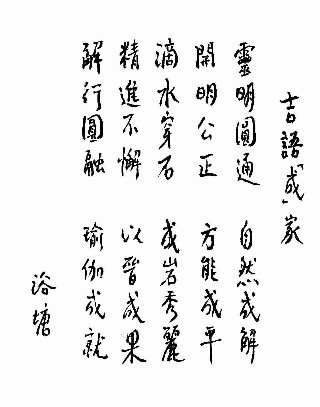 吉語「成」家
靈明圓通 自然成解
開明公正 方能成平
滴水穿石 成岩秀麗
精進不懈 以晉成果
解行圓融 瑜伽成就
浴塘